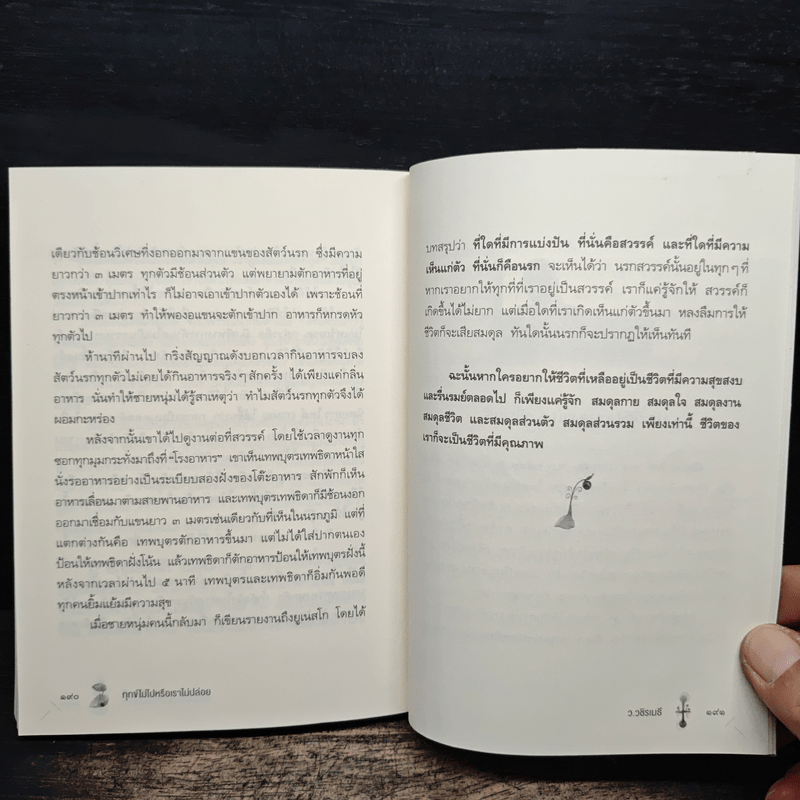 เดียวกับช้อนวิเศษที่งอกออกมาจากแขนของสัตว์นรก ซึ่งมีความ
ยาวกว่า ๓ เมตร ทุกตัวมีช้อนส่วนตัว แต่พยายามตักอาหารที่อยู่
ตรงหน้าเข้าปากเท่าไร ก็ไม่อาจเอาเข้าปากตัวเองได้ เพราะช้อนที่
ยาวกว่า ๓ เมตร ทำให้พองอแขนจะตักเข้าปาก อาหารก็หกรดหัว
ทุกตัวไป
ห้านาทีผ่านไป กริ่งสัญญาณดังบอกเวลากินอาหารจบลง
สัตว์นรกทุกตัวไม่เคยได้กินอาหารจริงๆ สักครั้ง ได้เพียงแค่กลิ่น
อาหาร นั่นทำให้ชายหนุ่มได้รู้สาเหตุว่า ทำไมสัตว์นรกทุกตัวจึงได้
ผอมกะหร่อง
หลังจากนั้นเขาได้ไปดูงานต่อที่สวรรค์ โดยใช้เวลาดูงานทุก
ซอกทุกมุมกระทั่งมาถึงที่“โรงอาหาร” เขาเห็นเทพบุตรเทพธิดาหน้าใส
นั่งรออาหารอย่างเป็นระเบียบสองฝั่งของโต๊ะอาหาร สักพักก็เห็น
อาหารเลื่อนมาตามสายพานอาหาร และเทพบุตรเทพธิดาก็มีช้อนงอก
ออกมาเชื่อมกับแขนยาว ๓ เมตรเช่นเดียวกับที่เห็นในนรกภูมิ แต่ที่
แตกต่างกันคือ เทพบุตรตักอาหารขึ้นมา แต่ไม่ได้ใส่ปากตนเอง
ป้อนให้เทพธิดาฝั่งโน้น แล้วเทพธิดาก็ตักอาหารป้อนให้เทพบุตรฝั่งนี้
หลังจากเวลาผ่านไป ๕ นาที เทพบุตรและเทพธิดาก็อิ่มกันพอดี
ทุกคนยิ้มแย้มมีความสุข
เมื่อชายหนุ่มคนนี้กลับมา ก็เขียนรายงานถึงยูเนสโก โดยได้
๑๙๐ ทุกข์ไม่ไปหรือเราไม่ปล่อย
บทสรุปว่า ที่ใดที่มีการแบ่งปัน ที่นั่นคือสวรรค์ และที่ใดที่มีความ
เห็นแก่ตัว ที่นั่นก็คือนรก จะเห็นได้ว่า นรกสวรรค์นั้นอยู่ในทุกๆ ที่
หากเราอยากให้ทุกที่ที่เราอยู่เป็นสวรรค์ เราก็แค่รู้จักให้ สวรรค์ก็
เกิดขึ้นได้ไม่ยาก แต่เมื่อใดที่เราเกิดเห็นแก่ตัวขึ้นมา หลงลืมการให้
ชีวิตก็จะเสียสมดุล ทันใดนั้นนรกก็จะปรากฏให้เห็นทันที
ฉะนั้นหากใครอยากให้ชีวิตที่เหลืออยู่เป็นชีวิตที่มีความสุขสงบ
และรื่นรมย์ตลอดไป ก็เพียงแค่รู้จัก สมดุลกาย สมดุลใจ สมดุลงาน
สมดุลชีวิต และสมดุลส่วนตัว สมดุลส่วนรวม เพียงเท่านี้ ชีวิตของ
เราก็จะเป็นชีวิตที่มีคุณภาพ
ว.วชิรเมธี ๑๙๑